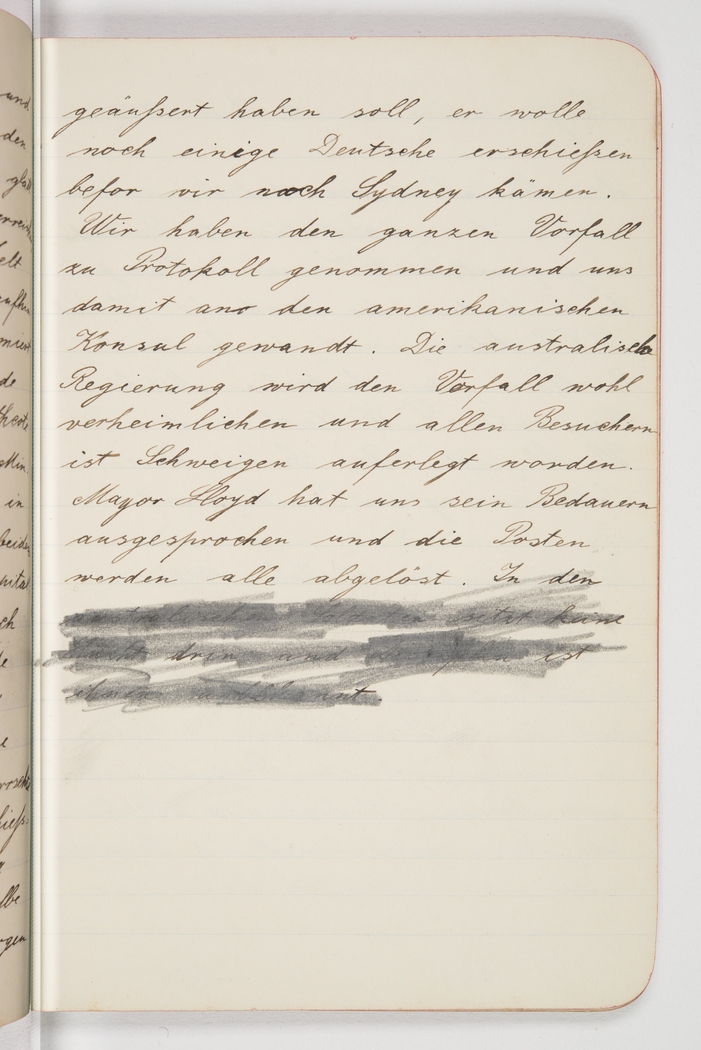 geäußert haben soll, er wolle
noch einige Deutsche erschießen
befor wir nach Sydney kämen.
Wir haben den ganzen Vorfall
zu Protokoll genommen und uns
damit an den amerikanischen
Konsul gewandt. Die australische
Regierung wird den Vorfall wohl
verheimlichen und allen Besuchern
ist Schweigen auferlegt worden.
Mayor Lloyd hat uns sein Bedauern
ausgesprochen und die Posten
werden alle abgelöst. In den
sitzt keine
drin und ist
und
den
in
ch
de